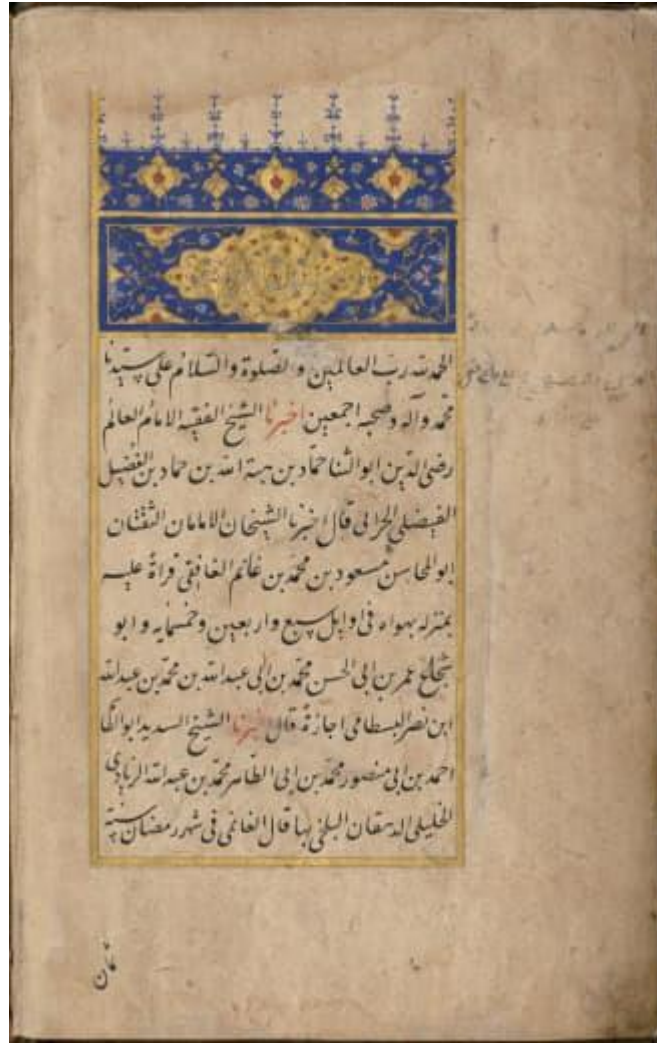 الحمد لله رب العالمين والصلوة والسلام على سيدنا
محمد وآله وصحبه اجمعين اخبرنا الشيخ الفقيه الامام العالم
رضى الدين ابو الثنا حماد بن هبة الله بن حماد بن الفضيل
الفيضلى الحرانى قال اخبرنا الشيخان الامامان الثقتان
ابو المحاسن مسعود بن محمد بن غانم الغانمى قراة عليه
بمنزله بهراه فى اوايل سبع واربعين وخمسمايه وابو
شجاع عمر بن ابى الحسن محمد بن ابى عبد الله بن محمد بن عبد الله
ابن نصر البسطامى اجازة قال اخبرنا الشيخ السديد ابو
احمد بن ابى منصور محمد بن ابى الطاهر محمد بن عبد الله الزيادى
الخليلى الدهقان البلخى بها قال الغانمى فى شهر رمضان سنة
ثمان